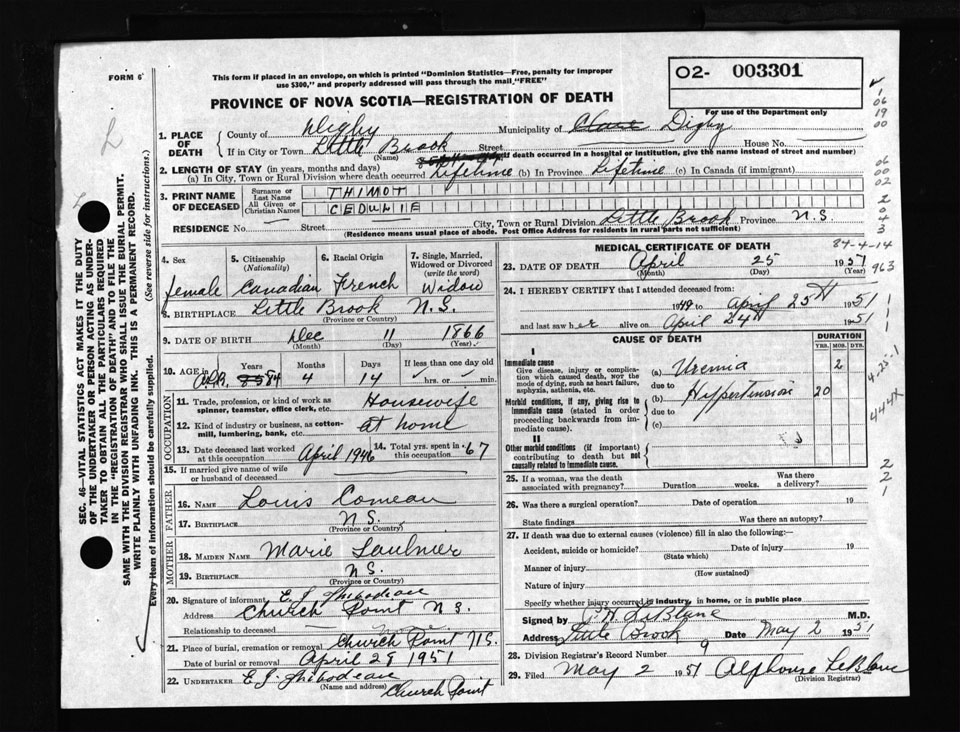 FORM 6
This form if placed in an envelope, on which is printed "Dominion Statistics—Free, penalty for improper
use $300," and properly addressed will pass through the mail "FREE"
O2- 003301
For use of the Department only
PROVINCE OF NOVA SCOTIA—REGISTRATION OF DEATH
1. PLACE OF DEATH
County of Digby Municipality of Clare Digby
If in City or Town Little Brook Street House No.
(Name) (If death occurred in a hospital or institution, give the name instead of street and number)
2. LENGTH OF STAY (in years, months and days)
(a) In City, Town or Rural Division where death occurred Lifetime (b) In Province Lifetime (c) In Canada (if immigrant)
3. PRINT NAME OF DECEASED
Surname or Last Name THIMOT
All Given or Christian Names CEDULIE
RESIDENCE No. Street City, Town or Rural Division Little Brook Province N.S.
(Residence means usual place of abode. Post Office Address for residents in rural parts not sufficient)
4. Sex female
5. Citizenship (Nationality) Canadian
6. Racial Origin French
7. Single, Married, Widowed or Divorced (write the word) Widow
8. BIRTHPLACE Little Brook N.S.
(Province or Country)
9. DATE OF BIRTH Dec 11 1866
(Month) (Day) (Year)
10. AGE in Years Months Days If less than one day old
84 4 14 hrs. or min.
OCCUPATION
11. Trade, profession, or kind of work as spinner, teamster, office clerk, etc. Housewife
12. Kind of industry or business, as cotton-mill, lumbering, bank, etc. at home
13. Date deceased last worked at this occupation April 1946
14. Total yrs. spent in this occupation 67
15. If married give name of wife or husband of deceased
FATHER
16. NAME Louis Comeau
17. BIRTHPLACE N.S.
(Province or Country)
MOTHER
18. MAIDEN NAME Marie Saulnier
19. BIRTHPLACE N.S.
(Province or Country)
20. Signature of informant E. J. Thibodeau
Address Church Point N.S.
Relationship to deceased
21. Place of burial, cremation or removal Church Point N.S.
Date of burial or removal April 28 1951
22. UNDERTAKER E. J. Thibodeau Church Point
(Name and address)
MEDICAL CERTIFICATE OF DEATH
84-4-14
23. DATE OF DEATH April 25 1951
(Month) (Day) (Year)
963
24. I HEREBY CERTIFY that I attended deceased from:
1949 to April 25th 1951
and last saw her alive on April 24th 1951
CAUSE OF DEATH
DURATION
YRS. MOS. DYS.
I
Immediate cause
Give disease, injury or complication which caused death, NOT the mode of dying, such as heart failure, asphyxia, asthenia, etc.
(a) Uremia 2
due to
Morbid conditions, if any, giving rise to immediate cause (stated in order proceeding backwards from immediate cause).
(b) Hypertension 20
due to
(c)
II
Other morbid conditions (if important) contributing to death but not causally related to immediate cause.
25. If a woman, was the death associated with pregnancy? Duration weeks. Was there a delivery?
26. Was there a surgical operation? Date of operation 19
State findings Was there an autopsy?
27. If death was due to external causes (violence) fill in also the following:—
Accident, suicide or homicide? Date of injury 19
(State which)
Manner of injury
(How sustained)
Nature of injury
Specify whether injury occurred in industry, in home, or in public place
Signed by LeBlanc M.D.
Address Little Brook Date May 2 1951
28. Division Registrar's Record Number 9
29. Filed May 2 1951 Alphonse LeBlanc
(Division Registrar)
SEC. 46—VITAL STATISTICS ACT MAKES IT THE DUTY
OF THE UNDERTAKER OR PERSON ACTING AS UNDER-
TAKER TO OBTAIN ALL THE PARTICULARS REQUIRED
IN THE "REGISTRATION OF DEATH" AND TO FILE THE
SAME WITH THE DIVISION REGISTRAR WHO SHALL ISSUE THE BURIAL PERMIT.
WRITE PLAINLY WITH UNFADING INK. THIS IS A PERMANENT RECORD.
Every item of information should be carefully supplied. (See reverse side for instructions.)